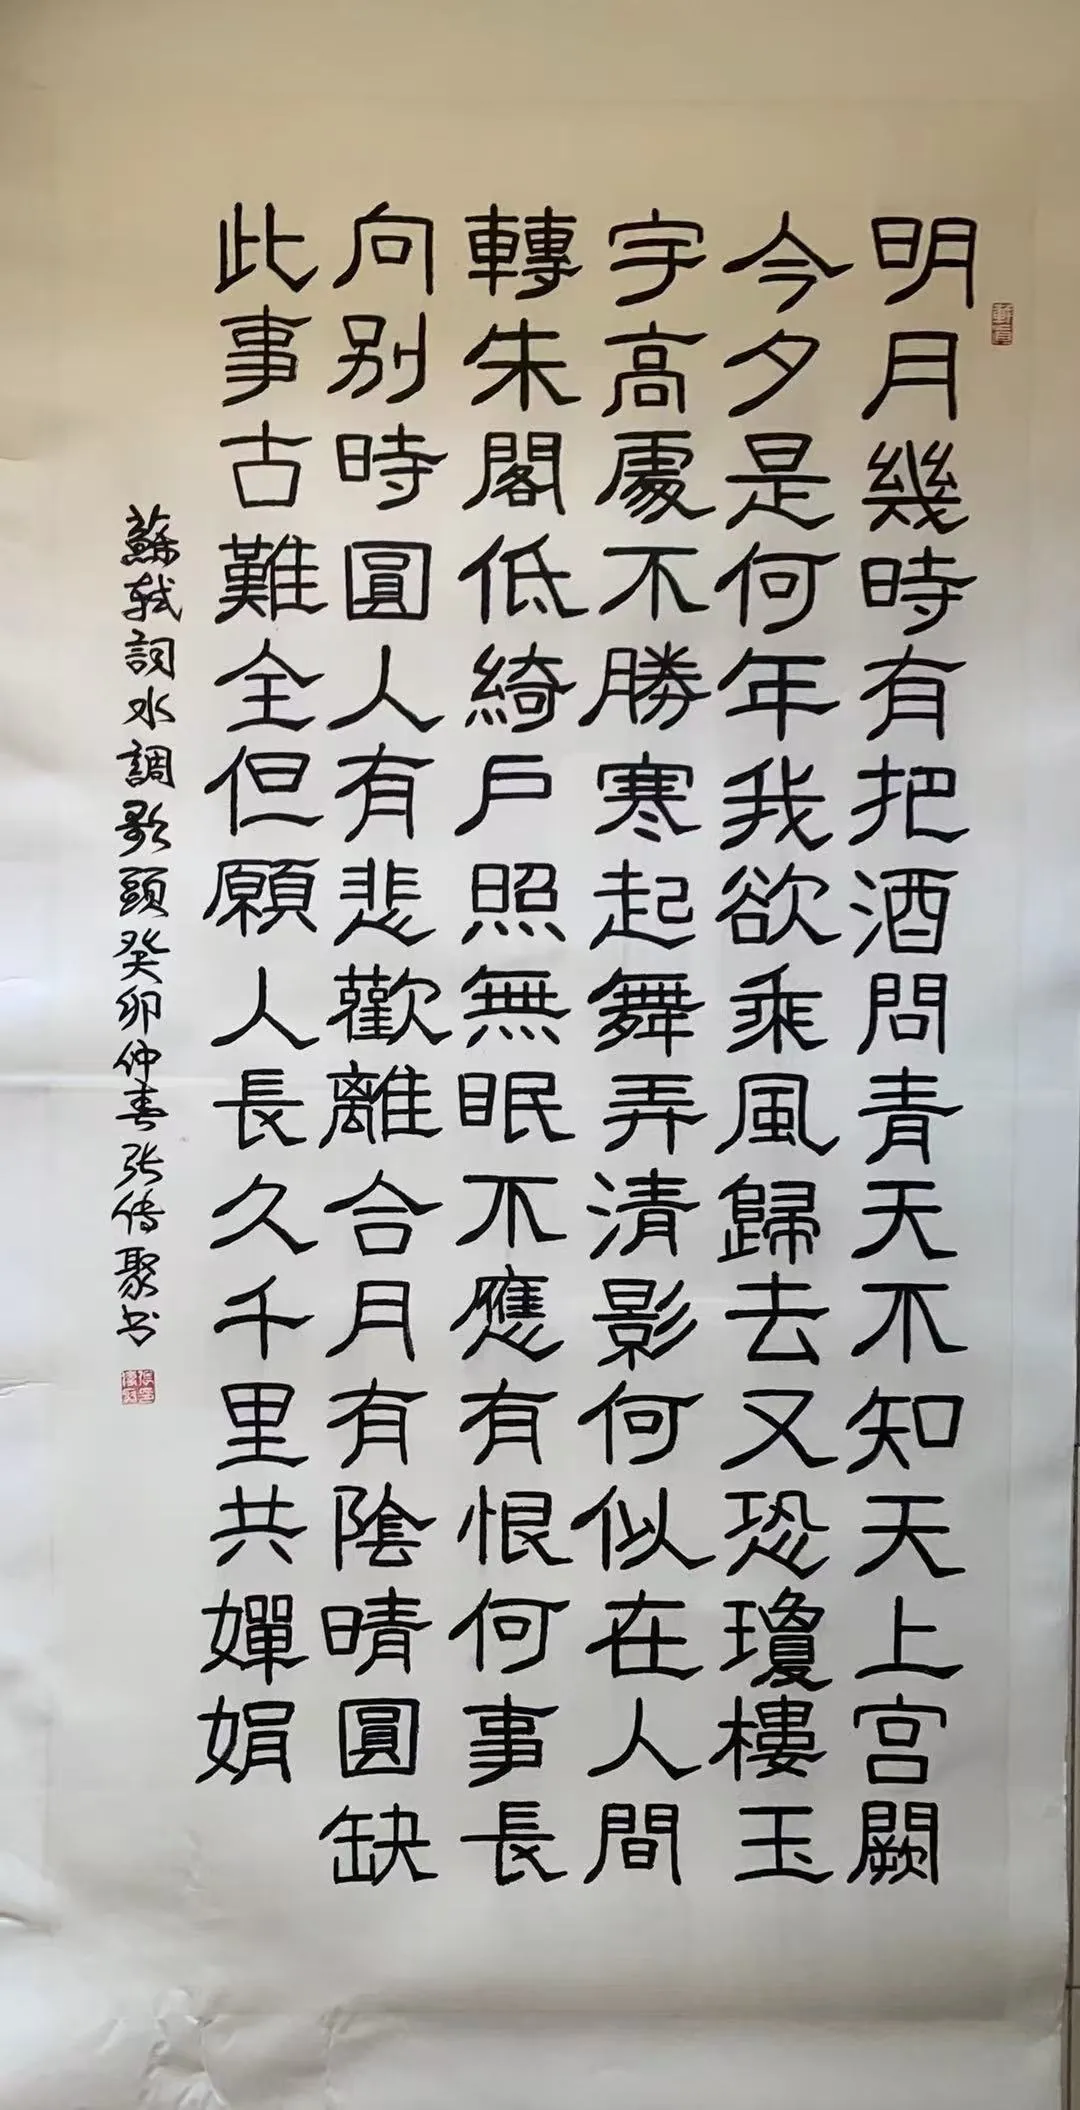 明月幾時有把酒問青天不知天上宫闕
今夕是何年我欲乘風歸去又恐瓊樓玉
宇高處不勝寒起舞弄清影何似在人間
轉朱閣低綺户照無眠不應有恨何事長
向别時圓人有悲歡離合月有陰晴圓缺
此事古難全但願人長久千里共嬋娟
蘇軾詞水調歌頭癸卯仲春张傳聚书